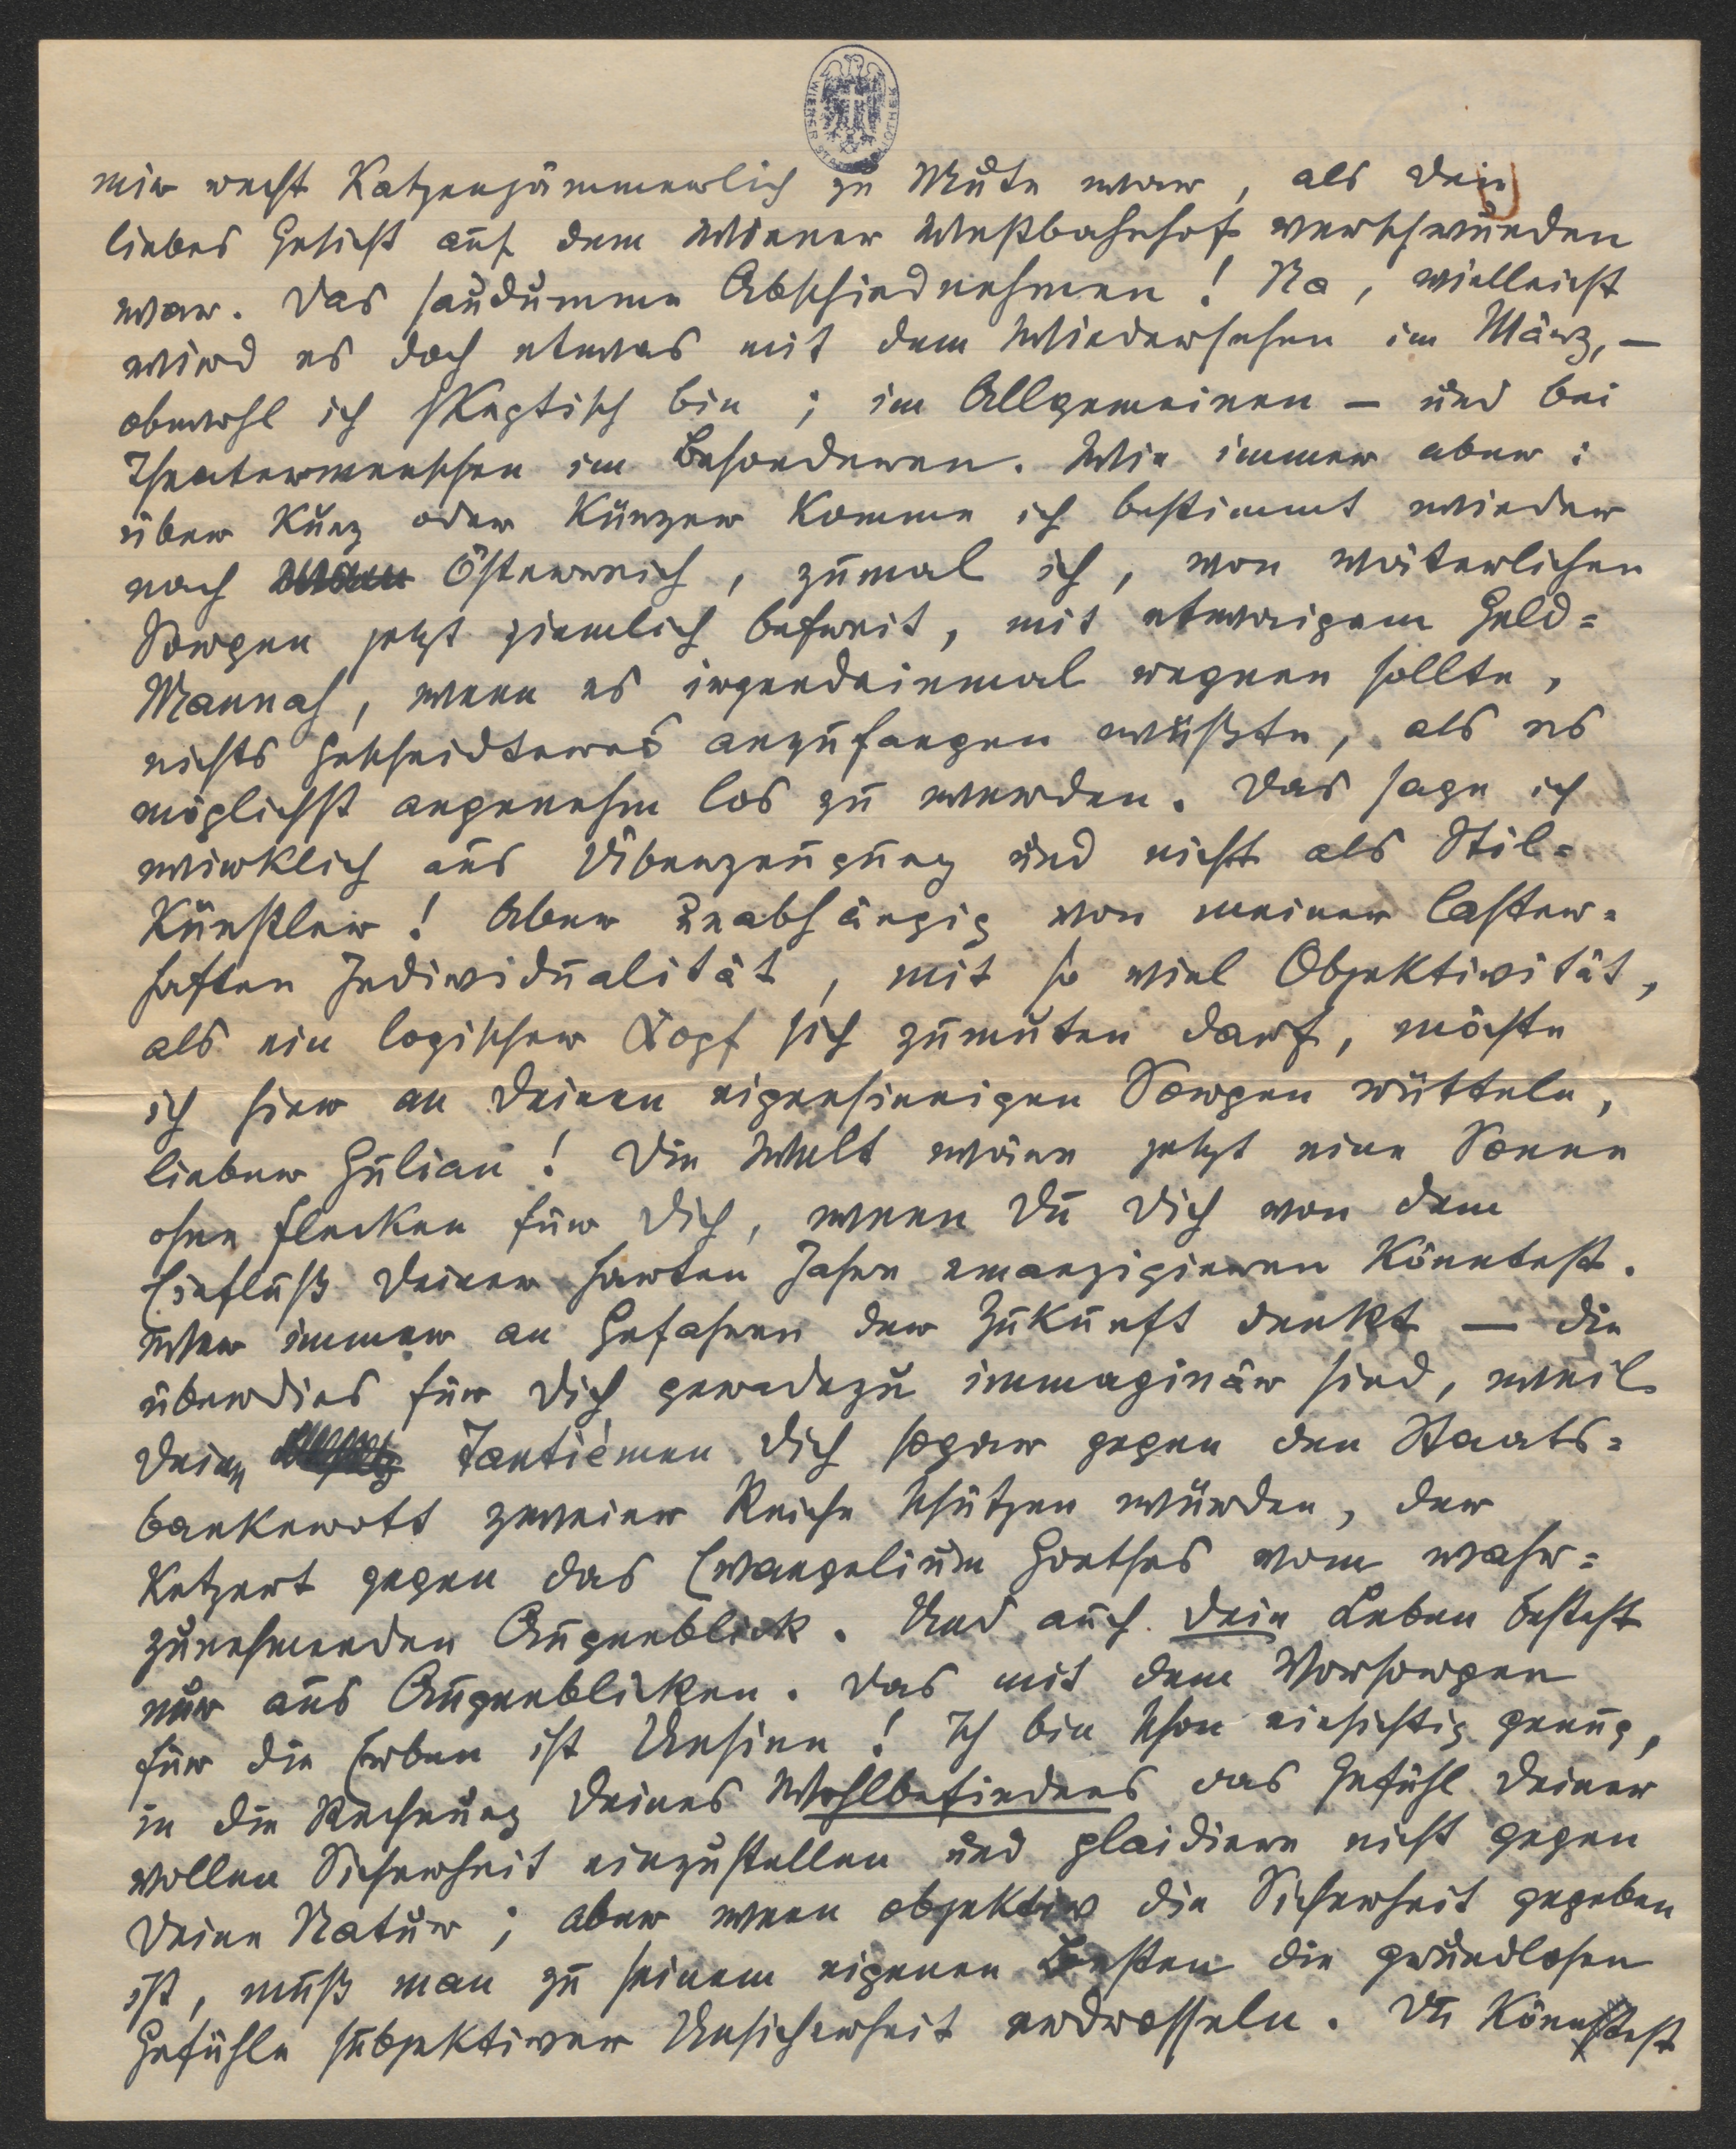 mir recht katzenjämmerlich zu Mute war, als Dein
liebes Gesicht auf dem Wiener Westbahnhof verschwunden
war. Das saudumme Abschiednehmen! Na, vielleicht
wird es doch etwas mit dem Wiedersehen im März, –
obwohl ich skeptisch bin; im Allgemeinen – und bei
Theatermenschen im Besonderen. Wie immer aber:
über kurz oder kürzer komme ich bestimmt wieder
nach Österreich, zumal ich, von väterlichen
Sorgen jetzt ziemlich befreit, mit etwaigem Geld=
Mannah, wenn es irgendeinmal regnen sollte,
nichts Gescheidteres anzufangen wüßte, als es
möglichst angenehm los zu werden. Das sage ich
wirklich aus Überzeugung und nicht als Stil=
Künstler! Aber unabhängig von meiner laster=
haften Individualität, mit so viel Objektivität,
als ein logischer Kopf sich zumuten darf, möchte
ich hier an Deinen eigensinnigen Sorgen rütteln,
lieber Julian! Die Welt wäre jetzt eine Sonne
ohne Flecken für Dich, wenn Du Dich von dem
Einfluß Deiner harten Jahre emanzipieren könntest.
Wer immer an Gefahren der Zukunft denkt – die
überdies für Dich geradezu immaginär sind, weil
Deine Tantièmen Dich sogar gegen den Staats=
bankerott zweier Reiche schützen würden, der
ketzert gegen das Evangelium Goethes vom wahr=
zunehmenden Augenblick. Und auch Dein Leben besteht
nur aus Augenblicken. Das mit dem Vorsorgen
für die Erben ist Unsinn! Ich bin schon einsichtig genug,
in die Rechnung Deines Wohlbefindens das Gefühl Deiner
vollen Sicherheit einzustellen und plaidiere nicht gegen
Deine Natur; aber wenn objektiv die Sicherheit gegeben
ist, muß man zu seinem eigenen Besten die grundlosen
Gefühle subjektiver Unsicherheit erdrosseln. Du könntest